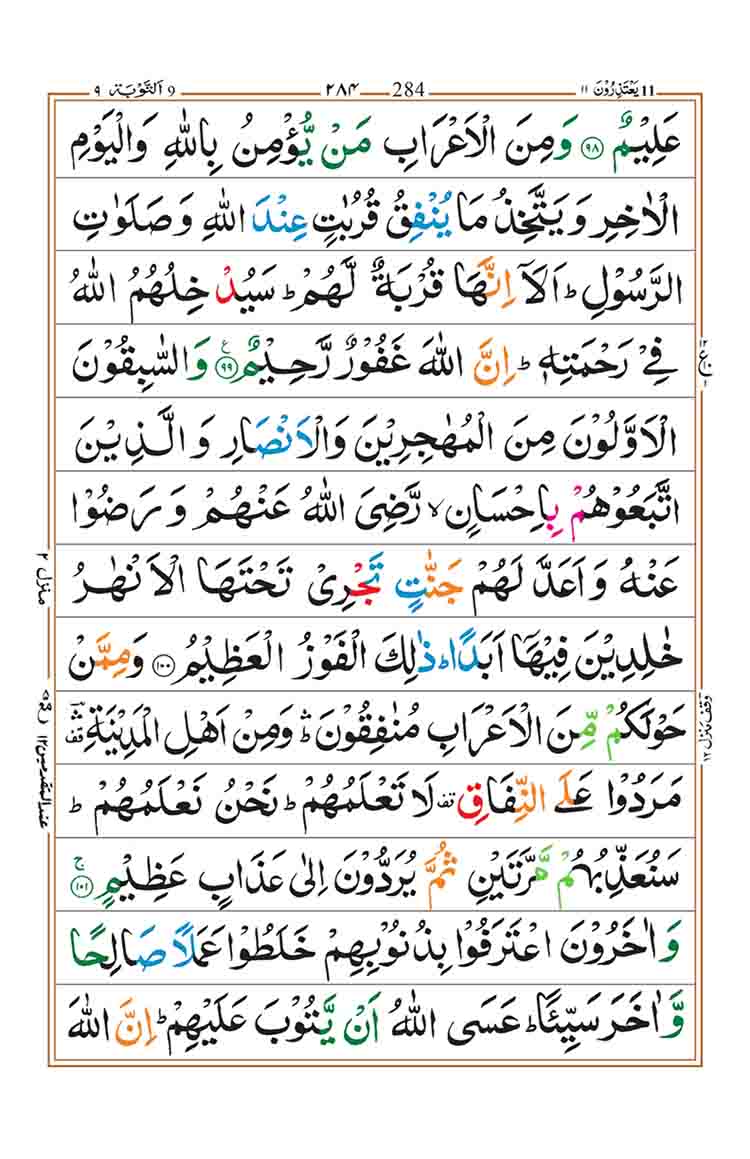 يَعْتَذِرُوْنَ ١١ 11 284 ٢٨٤ 9 اَلتَّوْبَة ٩
عَلِيْمٌ ﴿٩٨﴾ وَمِنَ الْاَعْرَابِ مَنْ يُّؤْمِنُ بِاللّٰهِ وَالْيَوْمِ
الْاٰخِرِ وَيَتَّخِذُ مَا يُنْفِقُ قُرُبٰتٍ عِنْدَ اللّٰهِ وَصَلَوٰتِ
الرَّسُوْلِ ؕ اَلَاۤ اِنَّهَا قُرْبَةٌ لَّهُمْ ؕ سَيُدْخِلُهُمُ اللّٰهُ
فِيْ رَحْمَتِهٖ ؕ اِنَّ اللّٰهَ غَفُوْرٌ رَّحِيْمٌ ﴿٩٩﴾ ع وَالسّٰبِقُوْنَ
الْاَوَّلُوْنَ مِنَ الْمُهٰجِرِيْنَ وَالْاَنْصَارِ وَالَّذِيْنَ
اتَّبَعُوْهُمْ بِاِحْسَانٍ ۙ رَّضِيَ اللّٰهُ عَنْهُمْ وَرَضُوْا
عَنْهُ وَاَعَدَّ لَهُمْ جَنّٰتٍ تَجْرِيْ تَحْتَهَا الْاَنْهٰرُ
خٰلِدِيْنَ فِيْهَاۤ اَبَدًا ؕ ذٰلِكَ الْفَوْزُ الْعَظِيْمُ ﴿١٠٠﴾ وَمِمَّنْ
حَوْلَكُمْ مِّنَ الْاَعْرَابِ مُنٰفِقُوْنَ ؛ۛ وَمِنْ اَهْلِ الْمَدِيْنَةِ ؔۛ
مَرَدُوْا عَلَى النِّفَاقِ قف لَا تَعْلَمُهُمْ ؕ نَحْنُ نَعْلَمُهُمْ ؕ
سَنُعَذِّبُهُمْ مَّرَّتَيْنِ ثُمَّ يُرَدُّوْنَ اِلٰى عَذَابٍ عَظِيْمٍ ﴿١٠١﴾ ج
وَاٰخَرُوْنَ اعْتَرَفُوْا بِذُنُوْبِهِمْ خَلَطُوْا عَمَلًا صَالِحًا
وَّاٰخَرَ سَيِّئًا ؕ عَسَى اللّٰهُ اَنْ يَّتُوْبَ عَلَيْهِمْ ؕ اِنَّ اللّٰهَ
منزل ٢
وقف منزل ١٢